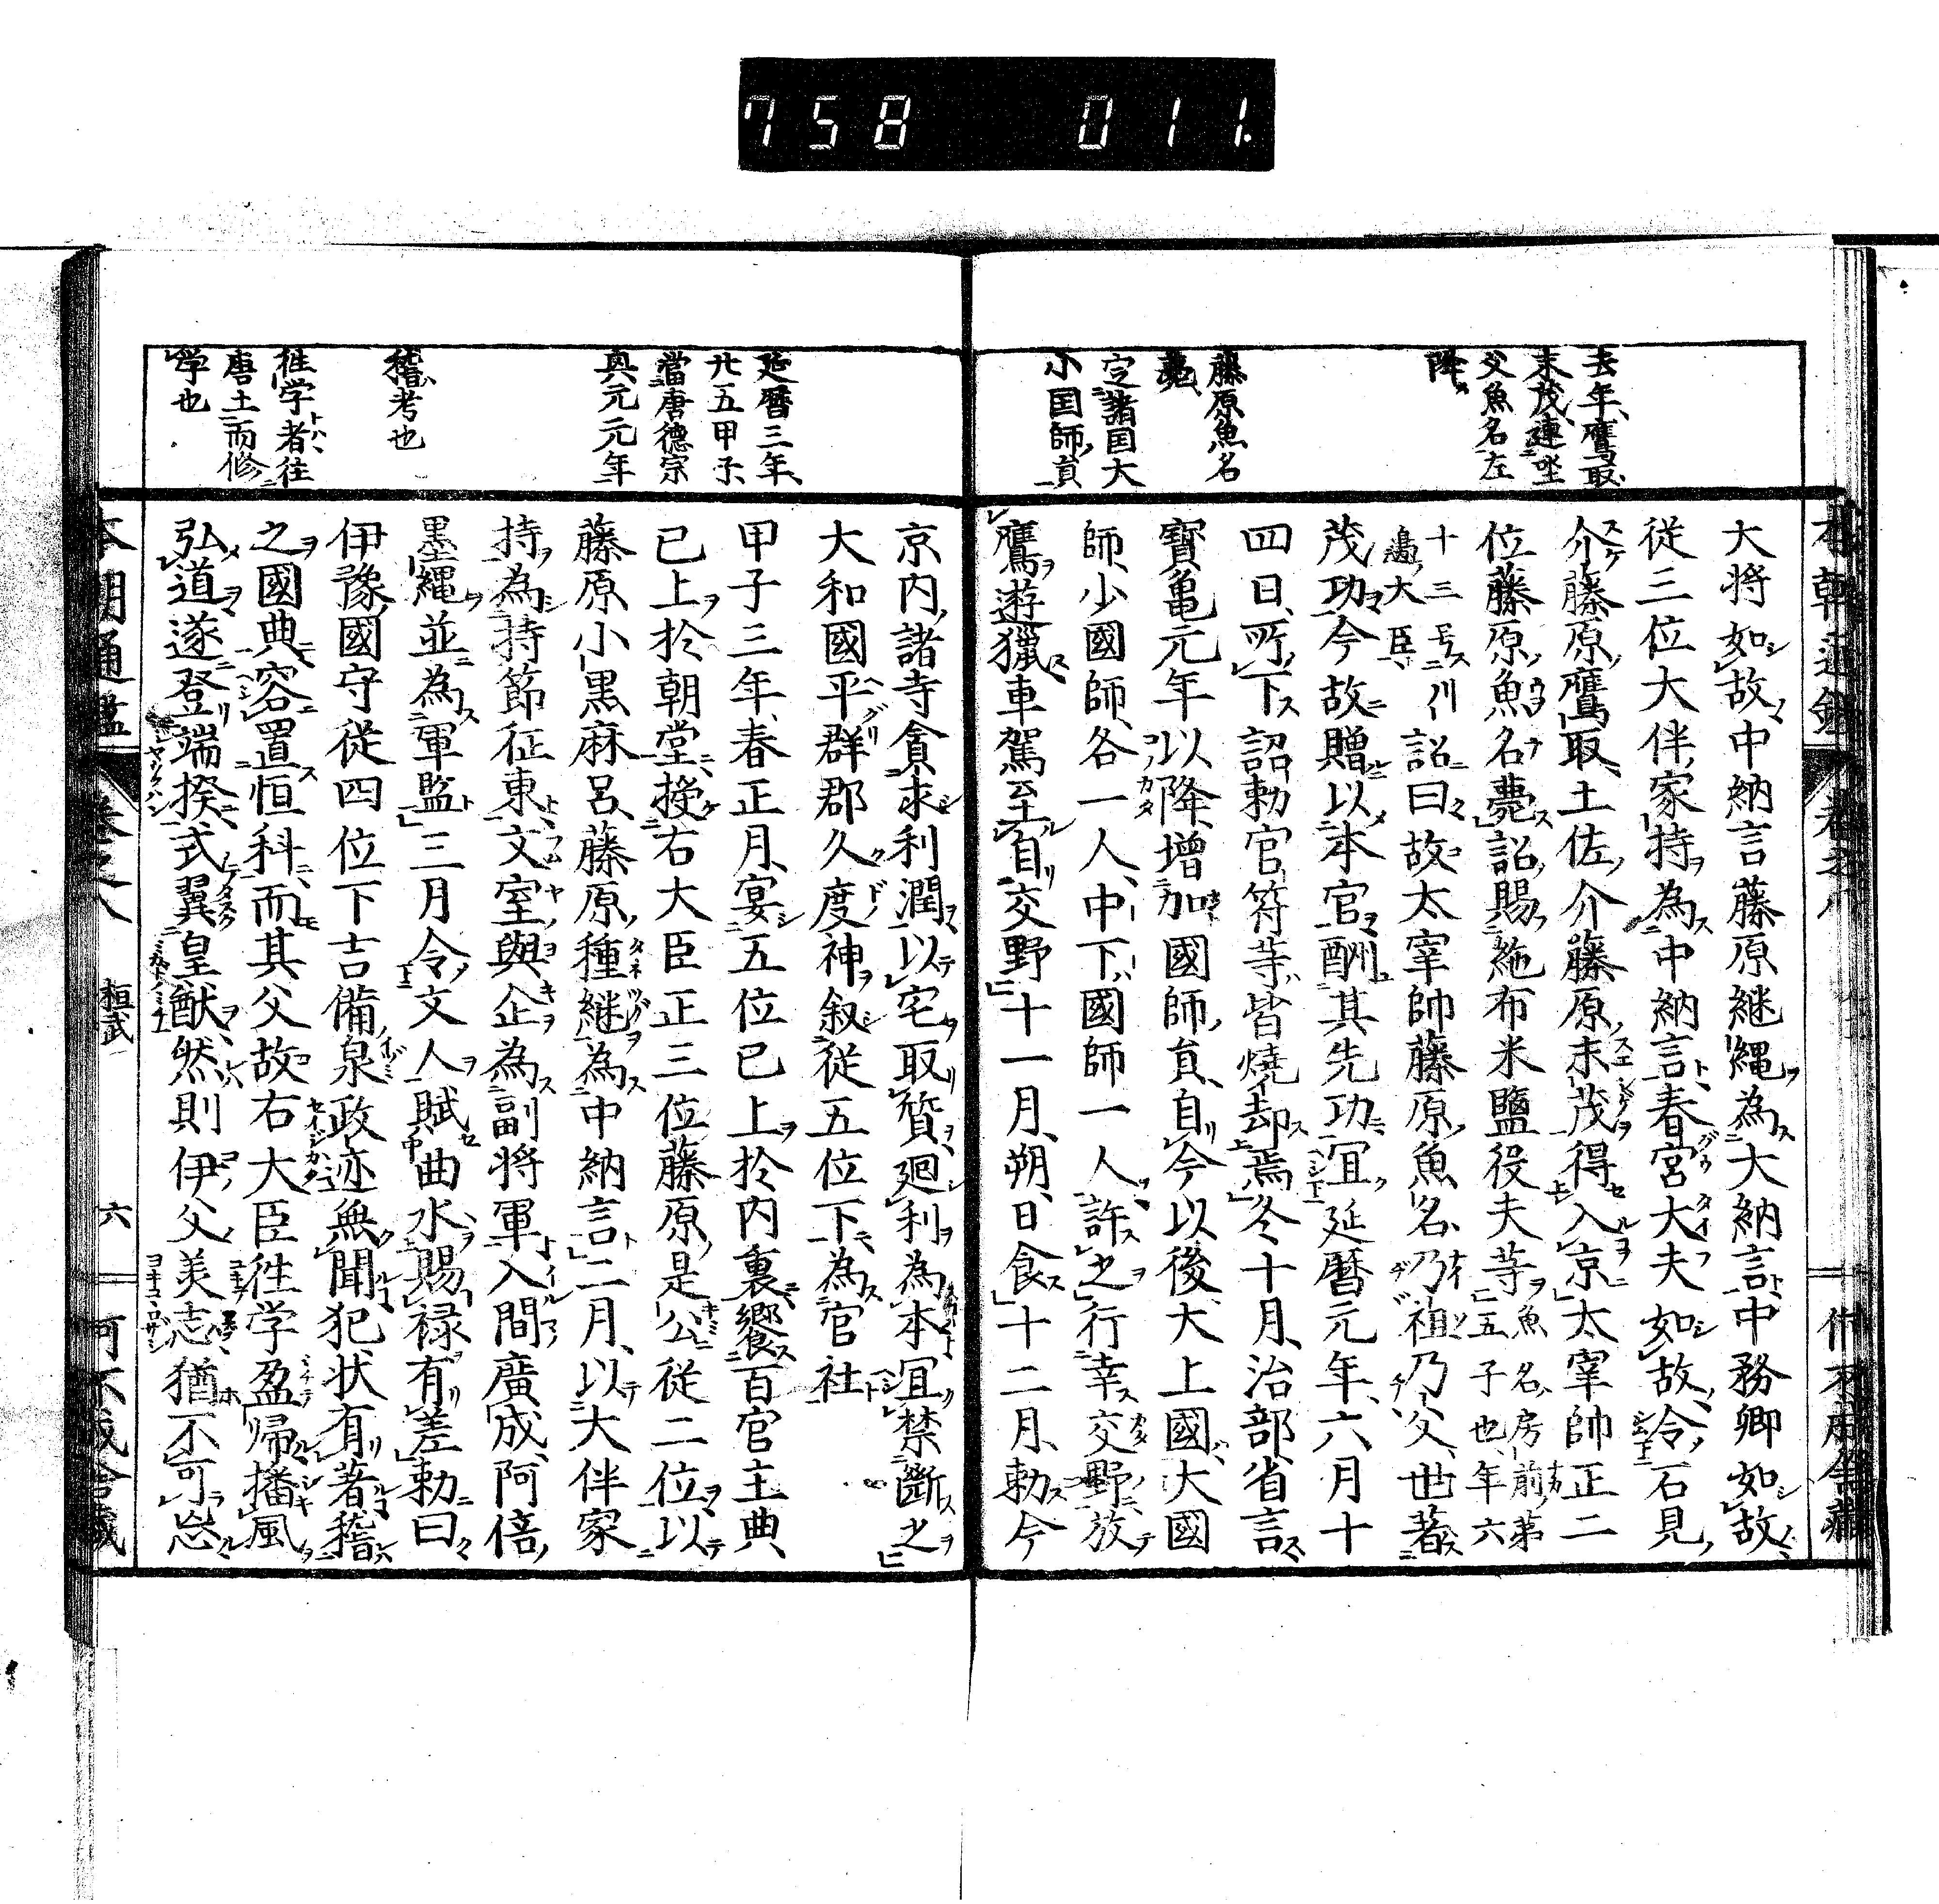 758 011
去年鷹取
末茂連坐
父魚名左
降
藤原魚名
薨
定諸国大
小国師員
大将如故中納言藤原継縄為大納言中務卿如故
従三位大伴家持為中納言春宮大夫如故令石見
介藤原鷹取土佐介藤原末茂得入京太宰帥正二
位藤原魚名薨詔賜絁布米鹽役夫等魚名房前第
五子也年六
十三
詔曰故太宰帥藤原魚名乃祖乃父世著
茂功今故贈以本官酬其先功宜延暦元年六月十
四日所下詔勅官符等皆焼却焉冬十月治部省言
寶亀元年以降増加國師員自今以後大上國大國
師少國師各一人中下國師一人許之行幸交野放
鷹遊猟車駕至自交野十一月朔日食十二月勅今
延暦三年
廿五甲子
當唐德宗
興元元年
稽考也
徃学者往
唐土而修
学也
京内諸寺貪求利潤以宅取質廻利為本宜禁斷之
大和國平群郡久度神叙従五位下為官社
甲子三年春正月宴五位已上於内裏饗百官主典
已上於朝堂授右大臣正三位藤原是公従二位以
藤原小黒麻呂藤原種継為中納言二月以大伴家
持為持節征東文室與企為副将軍入間廣成阿倍
墨縄並為軍監三月令文人賦曲水賜禄有差勅曰
伊豫國守従四位下吉備泉政迹無聞犯状有著稽
之國典容置恒科而其父故右大臣徃学盈帰播風
弘道遂登端揆式翼皇猷然則伊父美志猶不可忘
本朝通鑑
桓武
六